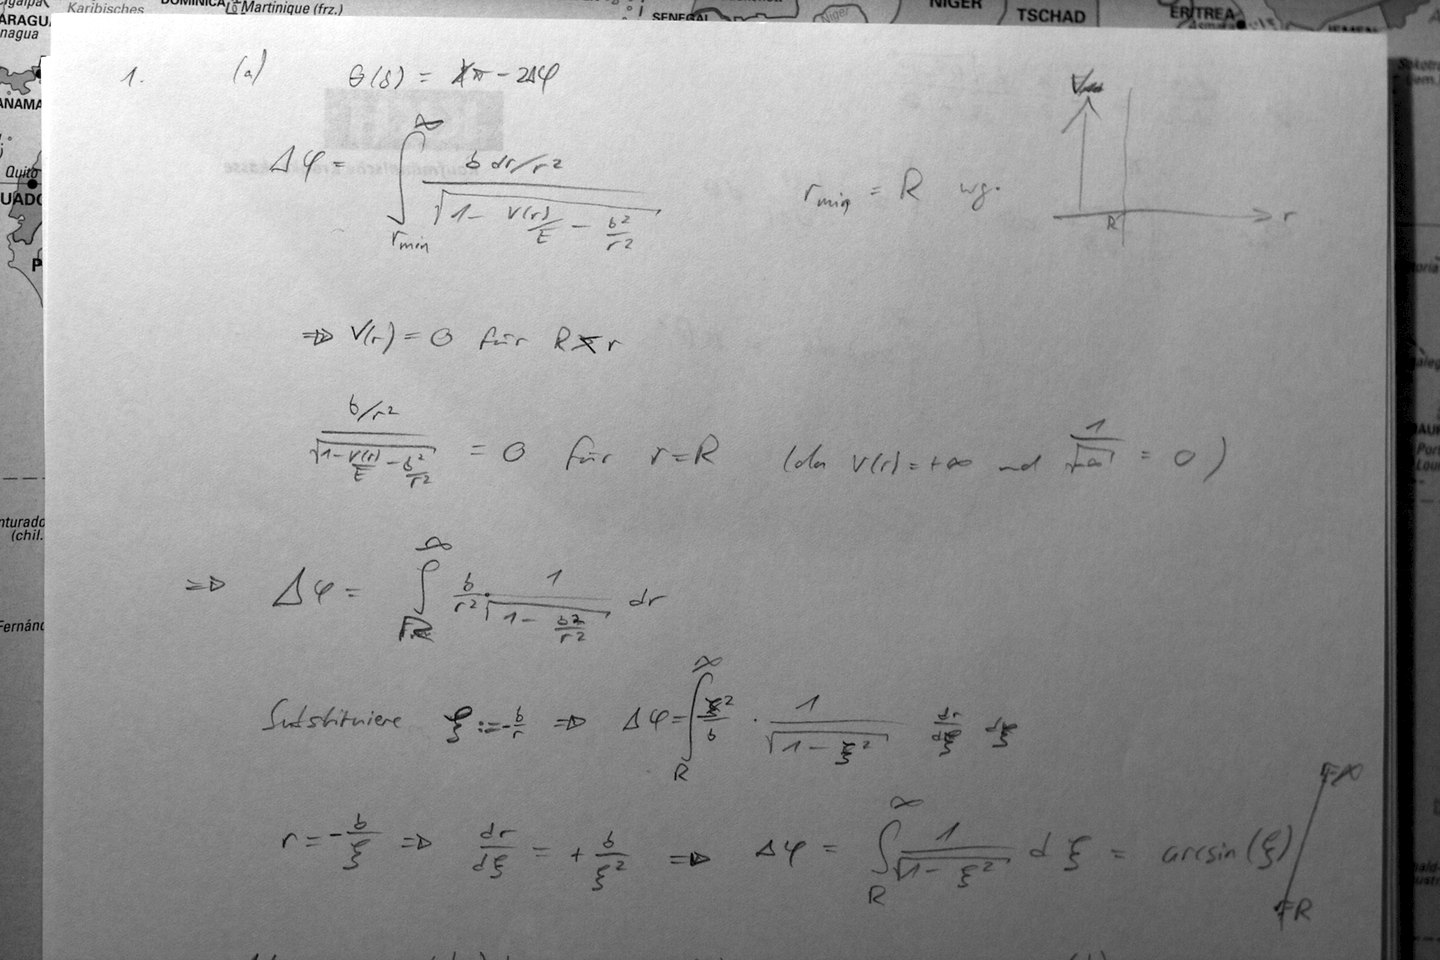 Karibisches
DOMINICA
Martinique (frz.)
SENEGAL
Niger
NIGER
TSCHAD
ERITREA
Asmara
JEMEN
nagua
ANAMA
Quito
P
nturado
(chil.
Fernánd
1. (a) θ(b) = π - 2Δφ
Δφ = ∫_{r_min}^{∞} (b dr/r²) / √(1 - V(r)/E - b²/r²)
r_min = R wg.
R r
⇒ V(r) = 0 für R < r
(b/r²) / √(1 - V(r)/E - b²/r²) = 0 für r = R (da V(r) = +∞ und 1/√∞ = 0)
⇒ Δφ = ∫_{R}^{∞} b/r² · 1/√(1 - b²/r²) dr
Substituiere ξ := -b/r ⇒ Δφ = ∫_{R}^{∞} ξ²/b · 1/√(1 - ξ²) dr/dξ dξ
r = -b/ξ ⇒ dr/dξ = + b/ξ² ⇒ Δφ = ∫_{R}^{∞} 1/√(1 - ξ²) dξ = arcsin(ξ) |_{R}^{∞}